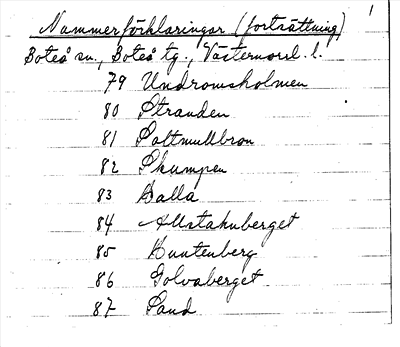 1
Nummerförklaringar (fortsättning)
Boteå sn., Boteå tg., Västernorrl. l.
79 Undromsholmen
80 Stranden
81 Pottmullbron
82 Skumpen
83 Halla
84 Allstakuberget
85 Kuntenberg
86 Golvaberget
87 Sand